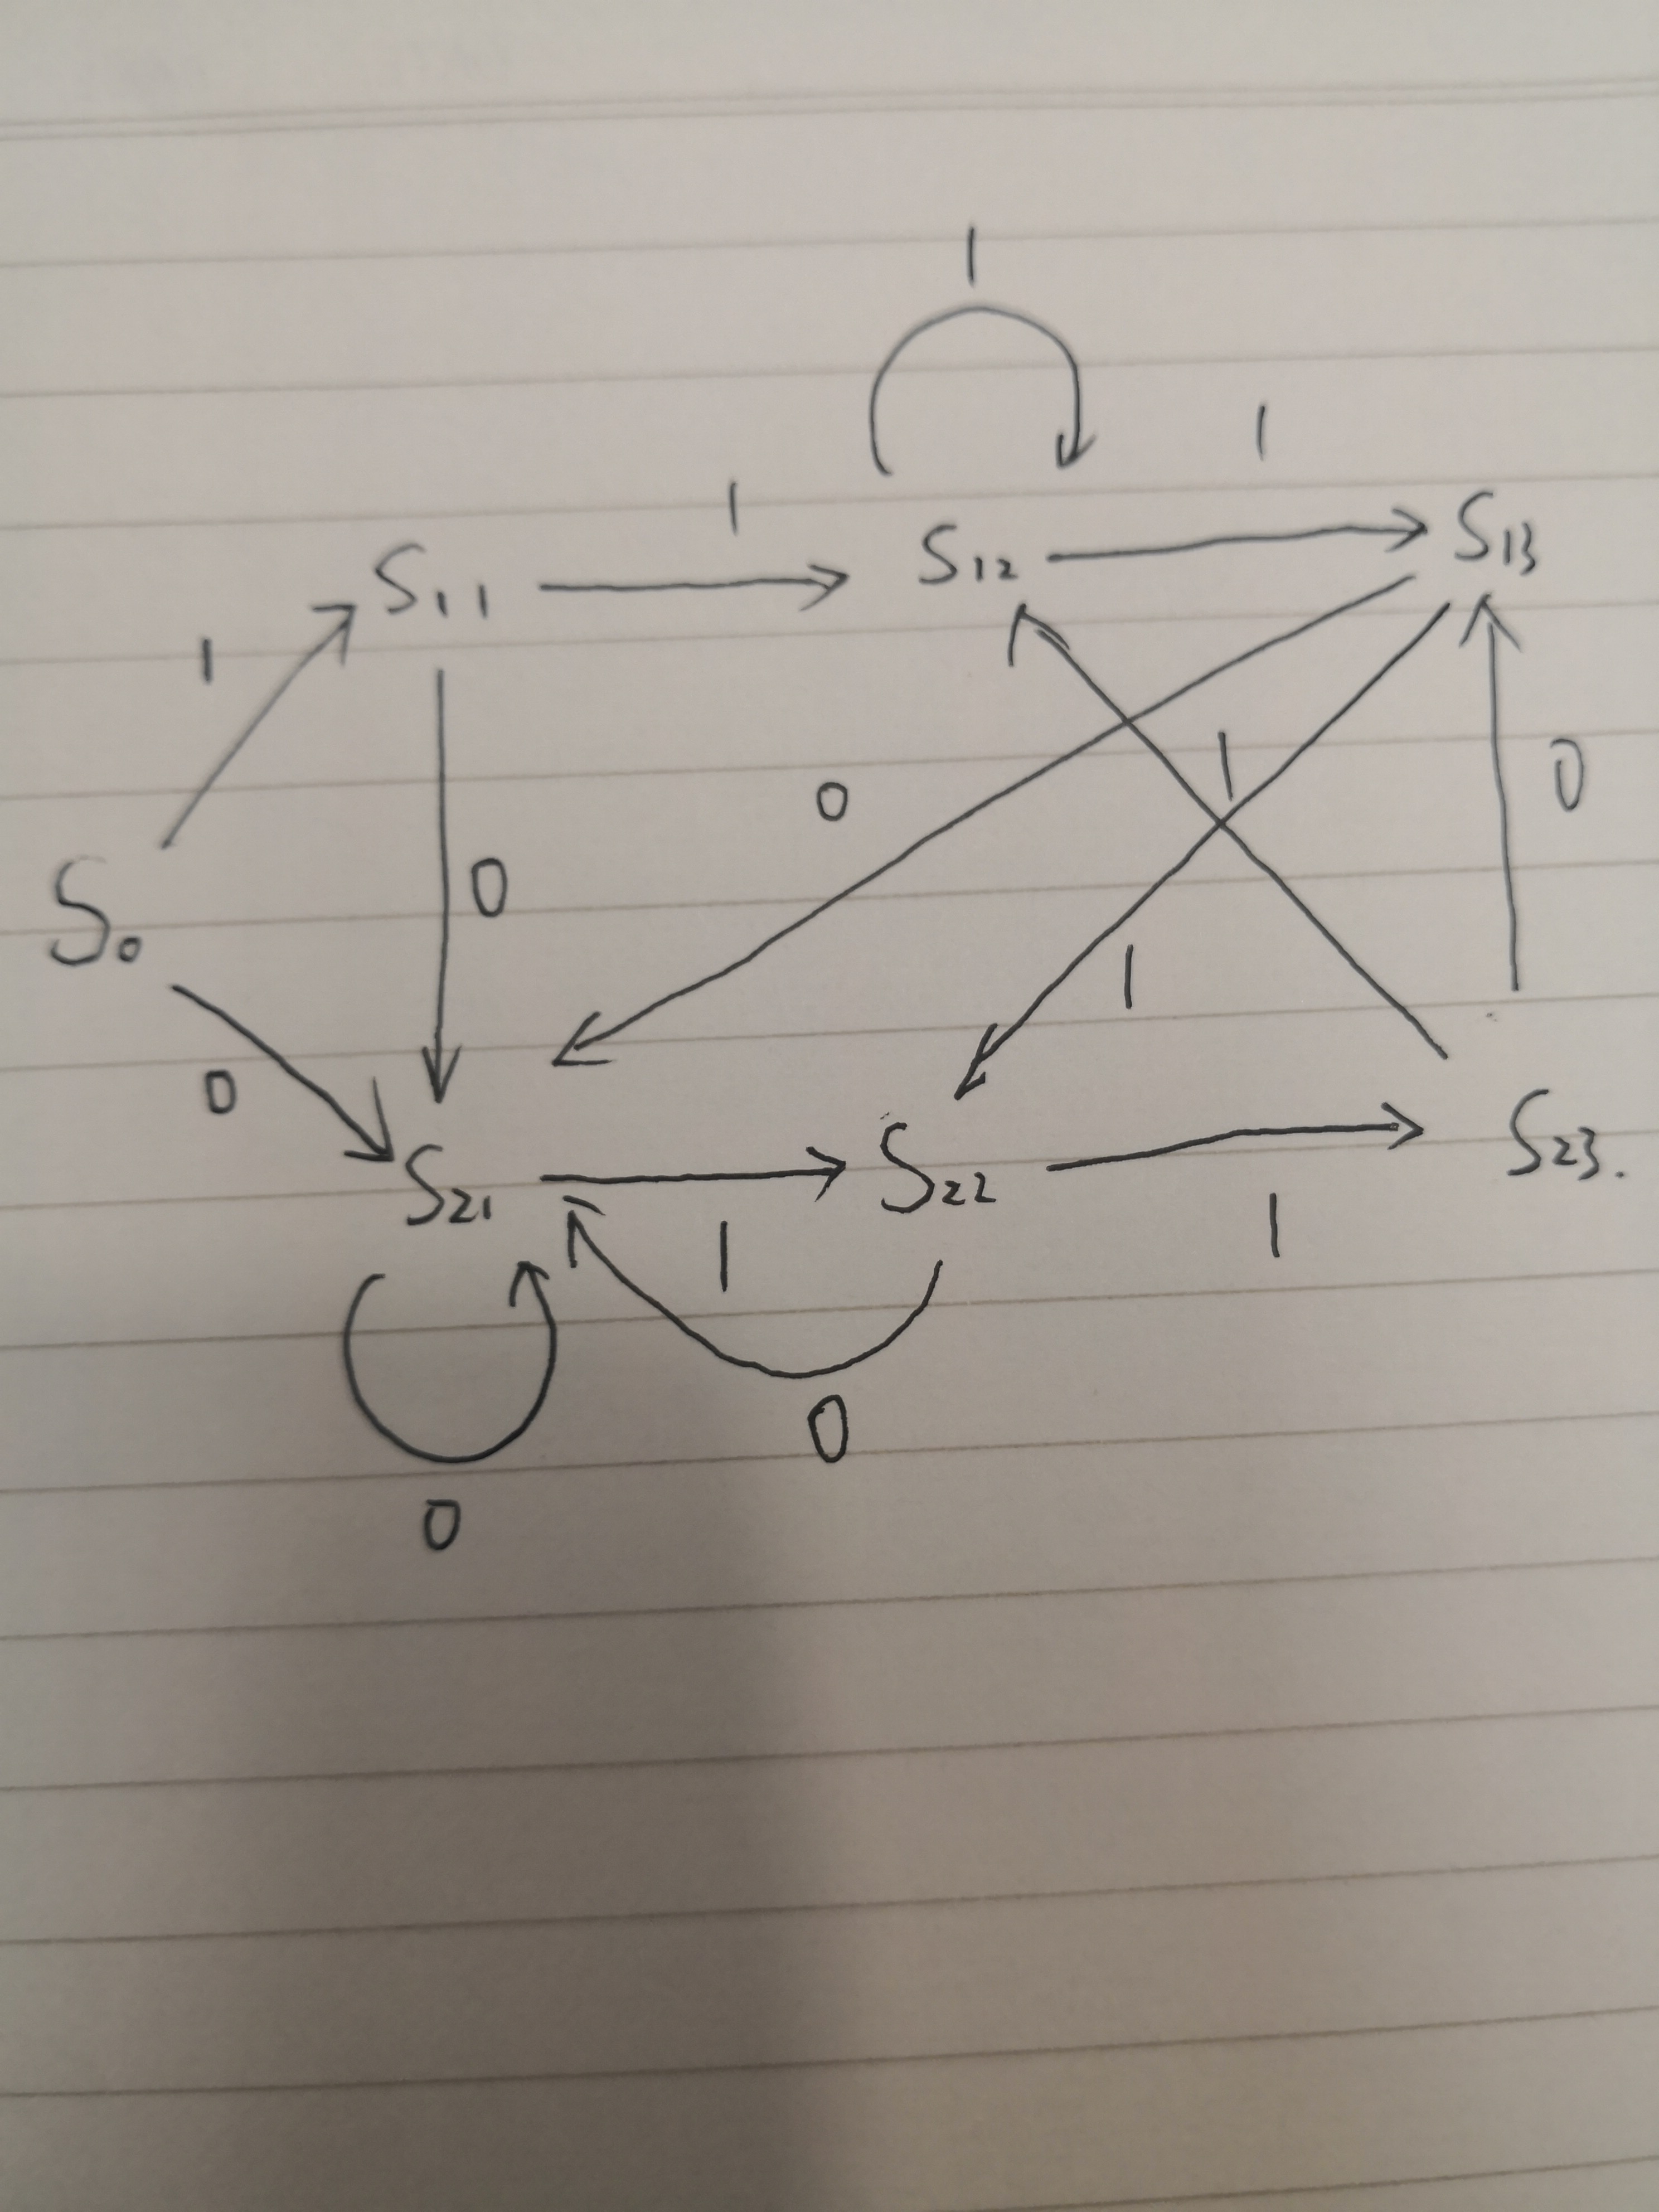 1
1
1
S₁₁
S₁₂
S₁₃
1
0
1
0
0
S₀
1
0
S₂₁
S₂₂
S₂₃.
1
1
0
0